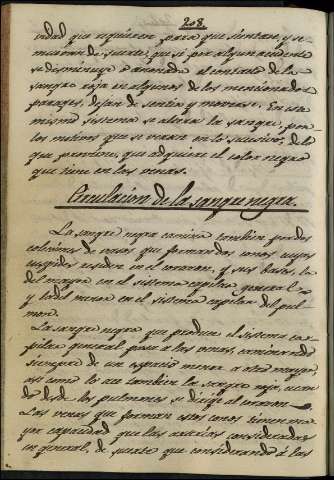 208
vidad qe. requieren para que sientan, y se
muevan de suerte, que si por algun accidente
se disminuye o anonada el contacto de la
sangre roja en algunos de los mencionados
parages, dejan de sentir y moverse. En este
mismo sistema se altera la sangre, por
los motivos que se veran en lo sucesivo, de lo
que proviene, que adquiere el color negro
que tiene en las venas.
Circulacion de la sangre negra.
La sangre negra camina tambien por dos
colunas de vasos que formandos conos cuyos
cuspides residen en el corazon, y sus bases, la
del mayor en el sistema capilar general
y la del menor en el sistema capilar del pul
mon.
La sangre negra que produce el sistema ca-
pilar general pasa a las venas, caminando
siempre de un espacio menor a otro mayor,
asi como lo ace tambien la sangre roja, cuan
do desde los pulmones se dirije al corazon.
Las venas que forman estos conos tienen ma
yor capacidad que las arterias consideradas
en general, de suerte que considerando á las